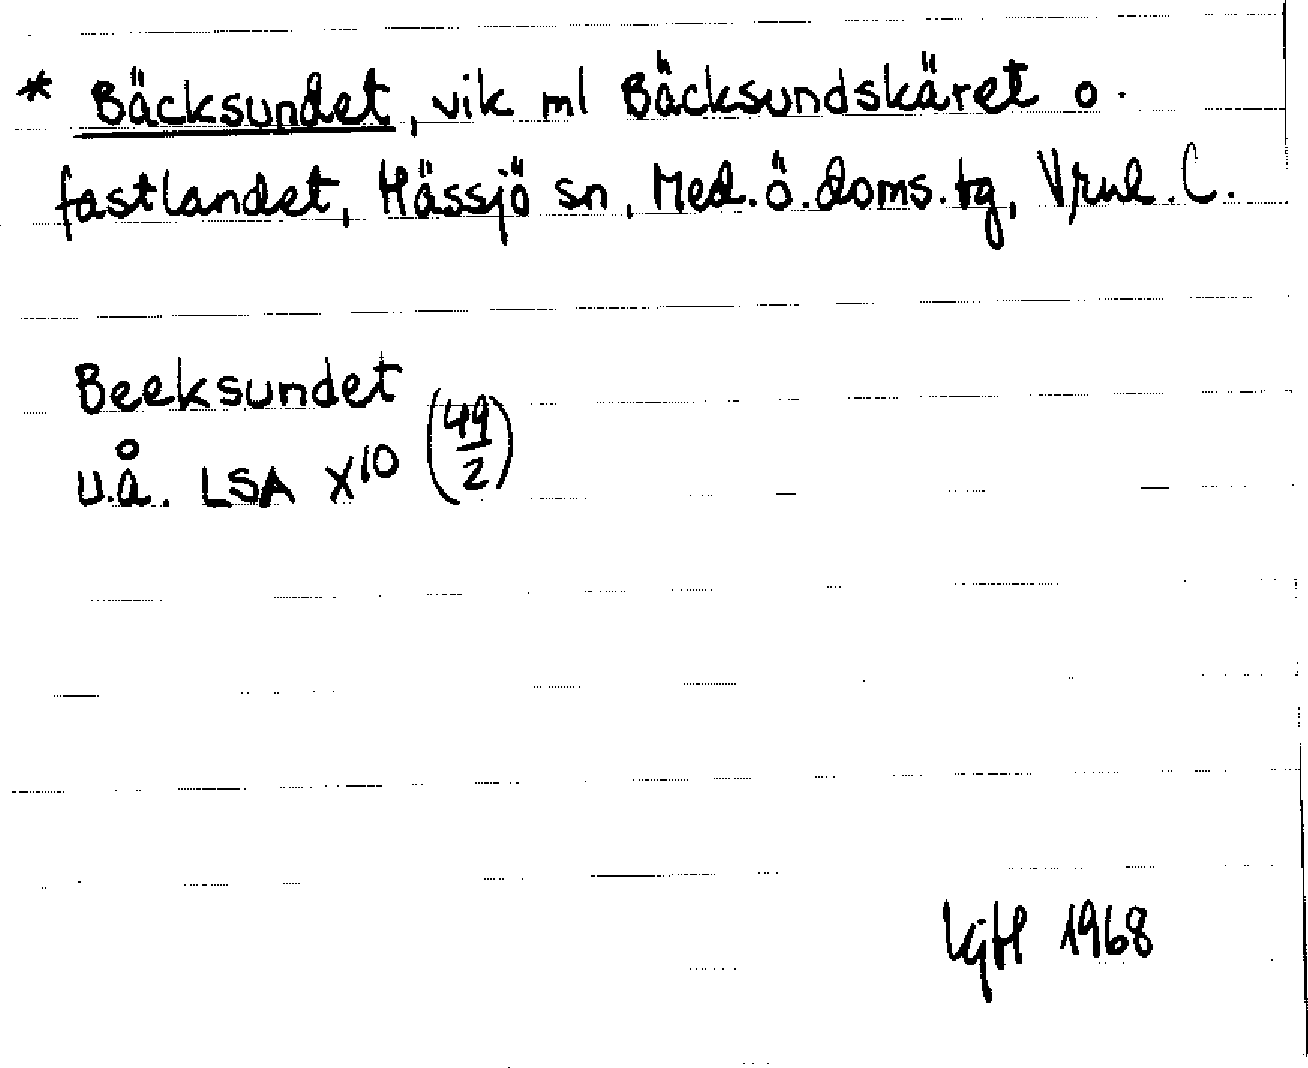 * Bäcksundet, vik ml Bäcksundskäret o.
fastlandet, Hässjö sn, Med. ö. doms. tg, Vrnl. C.
Beeksundet
u.å. LSA X10 (49/2)
LgH 1968